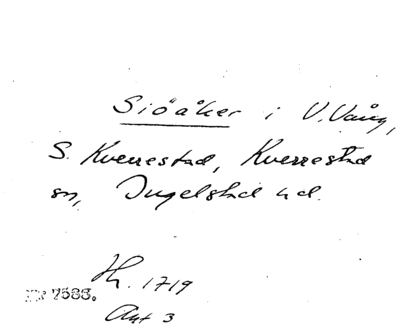 Siöåker i V. Vång,
S. Kverrestad, Kverrestad
sn, Ingelstad hd.
Lk. 1719
Akt 3